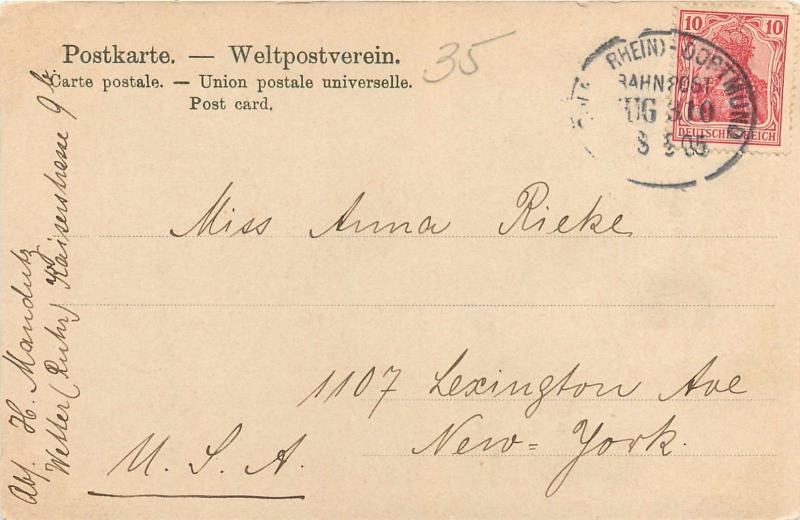 Postkarte. — Weltpostverein.
Carte postale. — Union postale universelle.
Post card.
35
10 10
DEUTSCHES REICH
(RHEIN)-DORTMUND
BAHNPOST
ZUG 310
8 5 05
Miss Anna Rieke
1107 Lexington Ave
New=York.
U. S. A.
Abs. H. Mandutz
Wetter (Ruhr) Kaiserstrasse 9b